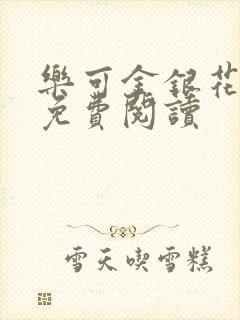 樂可金銀花
免費閱讀
雪天喫雪糕